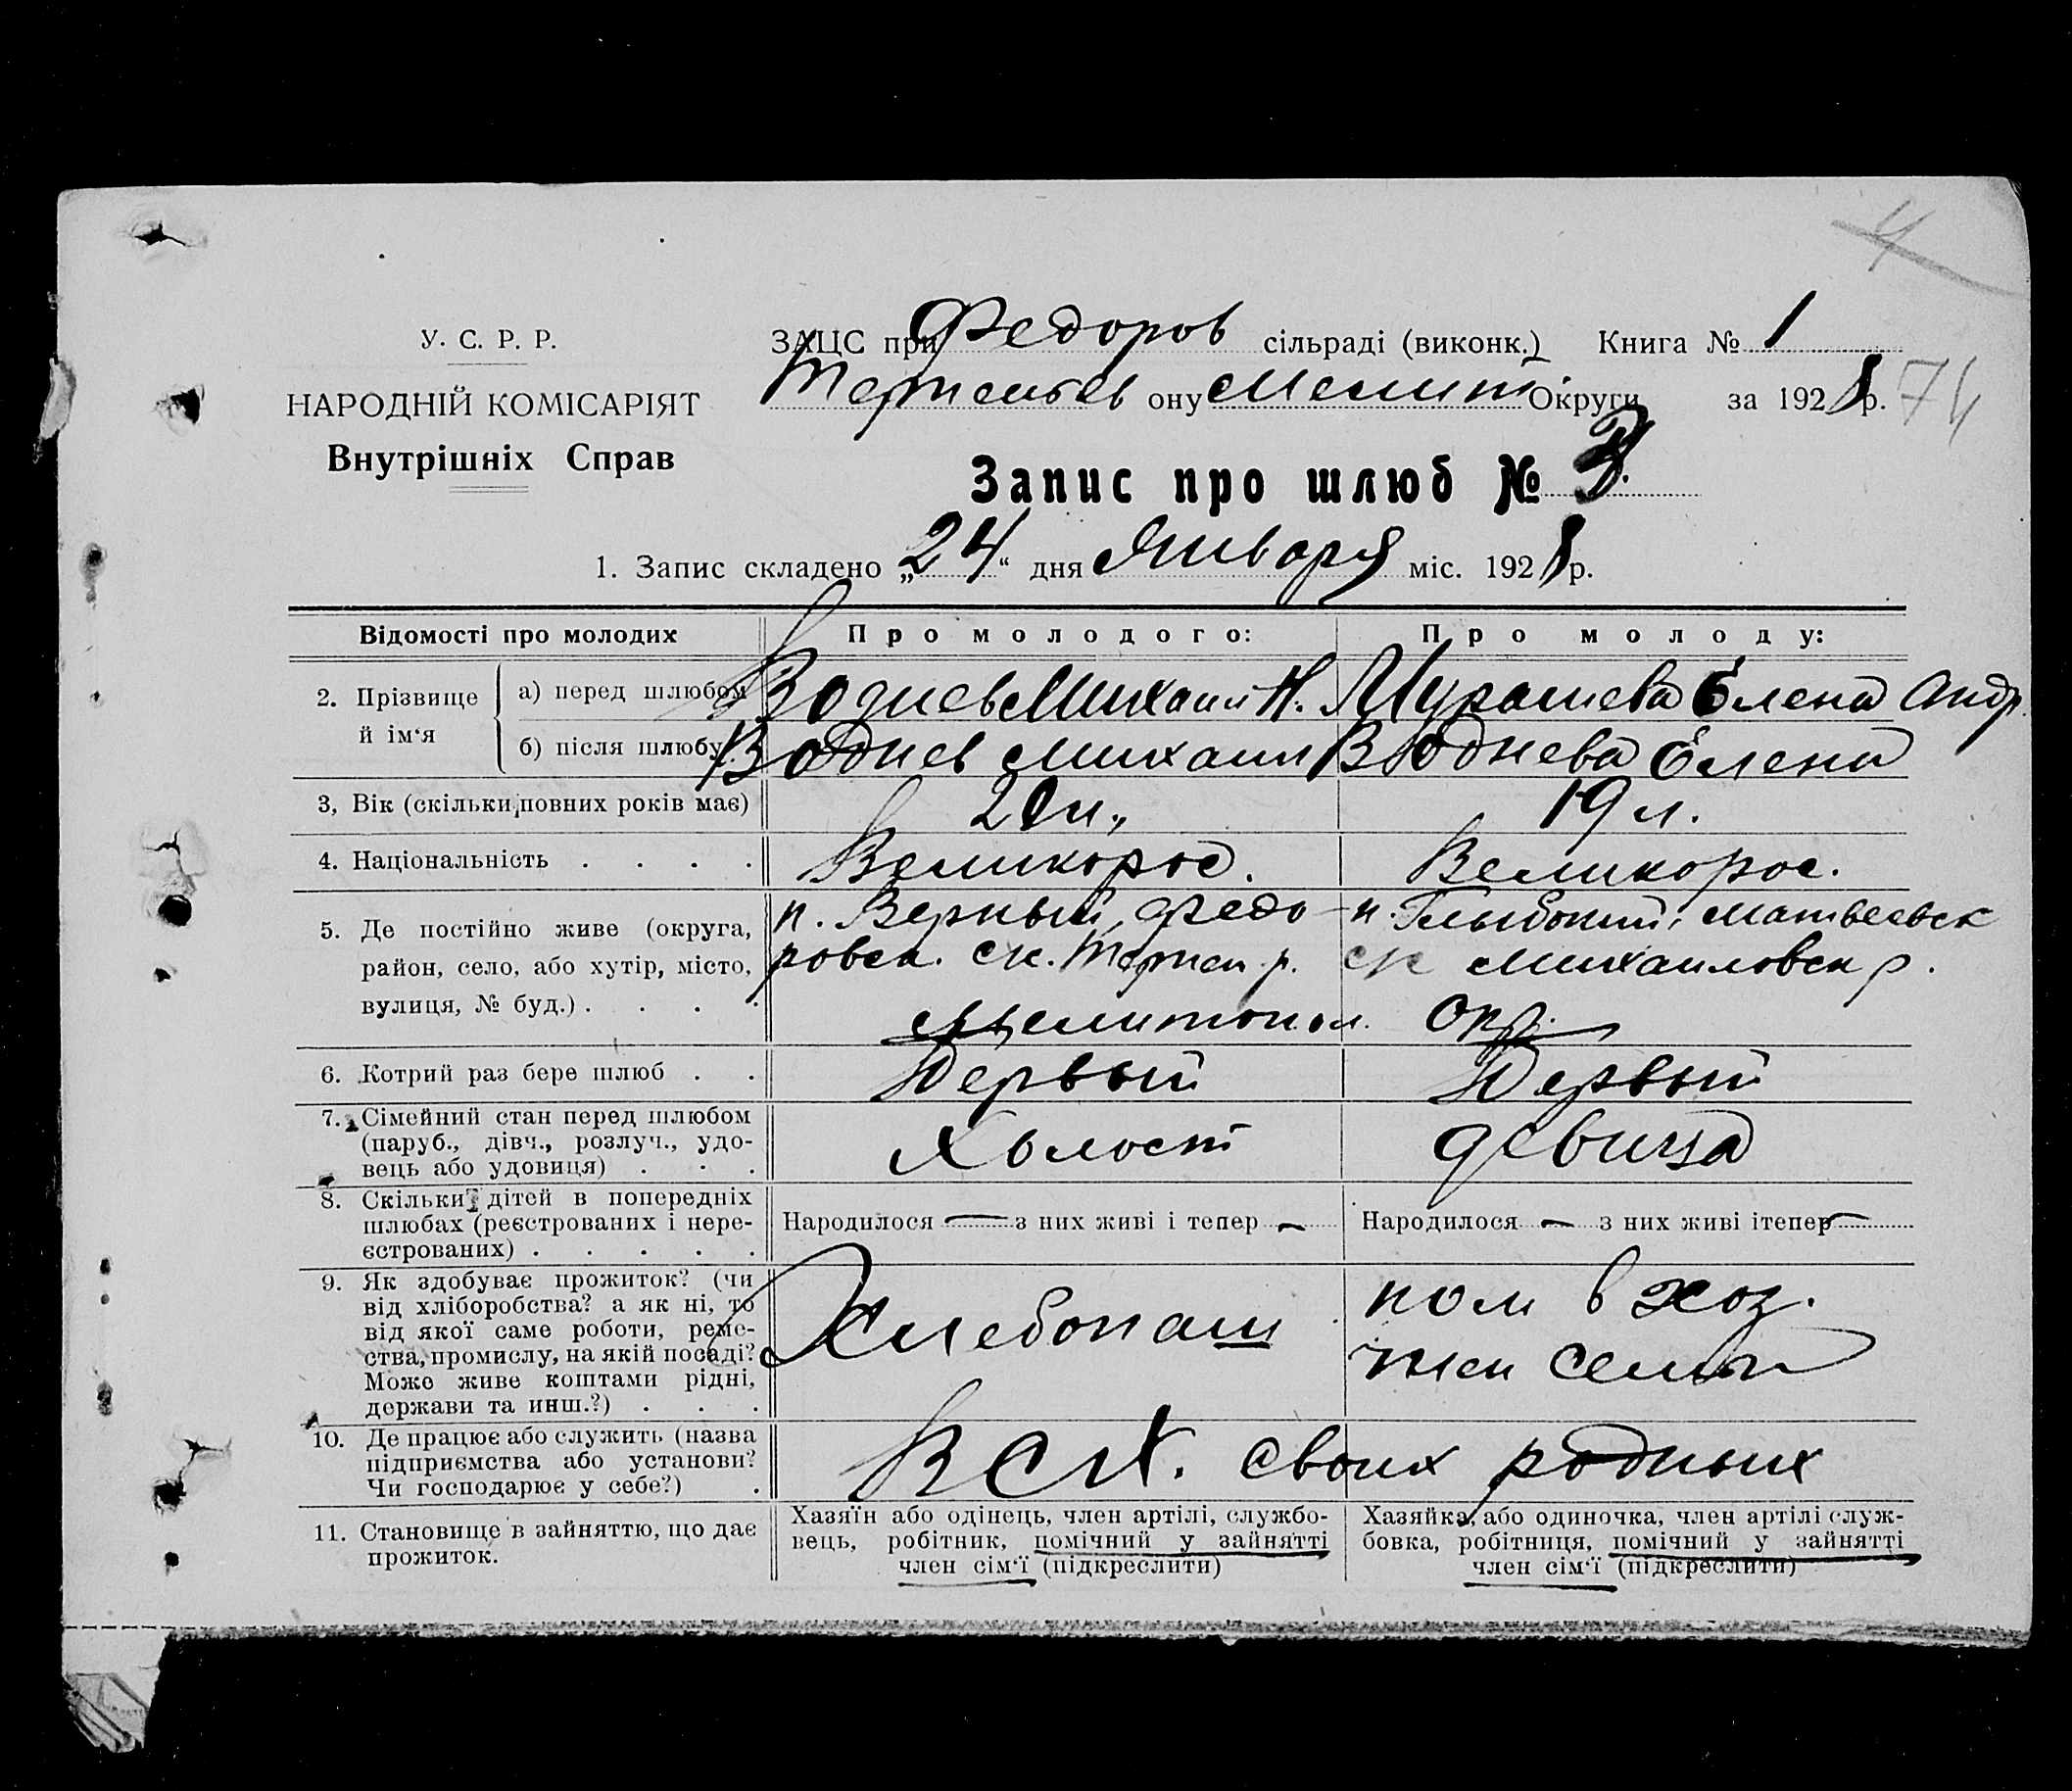 4
У. С. Р. Р.
НАРОДНІЙ КОМІСАРІЯТ
Внутрішніх Справ
ЗАЦС при Федоров сільраді (виконк.) Книга № 1
ону Мелит Округи за 1928 р. 74
Запис про шлюб № 3.
1. Запис складено „24“ дня Января міс. 1928 р.
Відомості про молодих Про молодого: Про молоду:
2. Прізвище й ім‘я
а) перед шлюбом Воднев Михаил Н. Мурашева Елена Андр.
б) після шлюбу Воднев Михаил Воднева Елена
3, Вік (скільки повних років має) 19 л.
4. Національність . . . . Великорос. Великорос.
5. Де постійно живе (округа, п. Верный, Федо- п. Глыбокий, Матвеевск
район, село, або хутір, місто, ровск. р. Михаиловск р.
вулиця, № буд.) . . . . Мелитопол. Окр.
6. Котрий раз бере шлюб . . Первый Первый
7. Сімейний стан перед шлюбом
(паруб., дівч., розлуч., удо-
вець або удовиця) . . . Холост девица
8. Скільки дітей в попередніх
шлюбах (реєстрованих і нере- Народилося — з них живі і тепер — Народилося — з них живі ітепер —
єстрованих) . . . . .
9. Як здобуває прожиток? (чи
від хліборобства? а як ні, то
від якої саме роботи, реме-
ства, промислу, на якій посаді?
Може живе коштами рідні,
держави та инш.?) . . .
Хлебопаш
пом в хоз.
член семьи
10. Де працює або служить (назва
підприємства або установи?
Чи господарює у себе?) .
В с/х. своих родных
11. Становище в зайняттю, що дає
прожиток.
Хазяїн або одінець, член артілі, службо-
вець, робітник, помічний у зайнятті
член сім‘ї (підкреслити)
Хазяйка, або одиночка, член артілі служ-
бовка, робітниця, помічний у зайнятті
член сім‘ї (підкреслити)